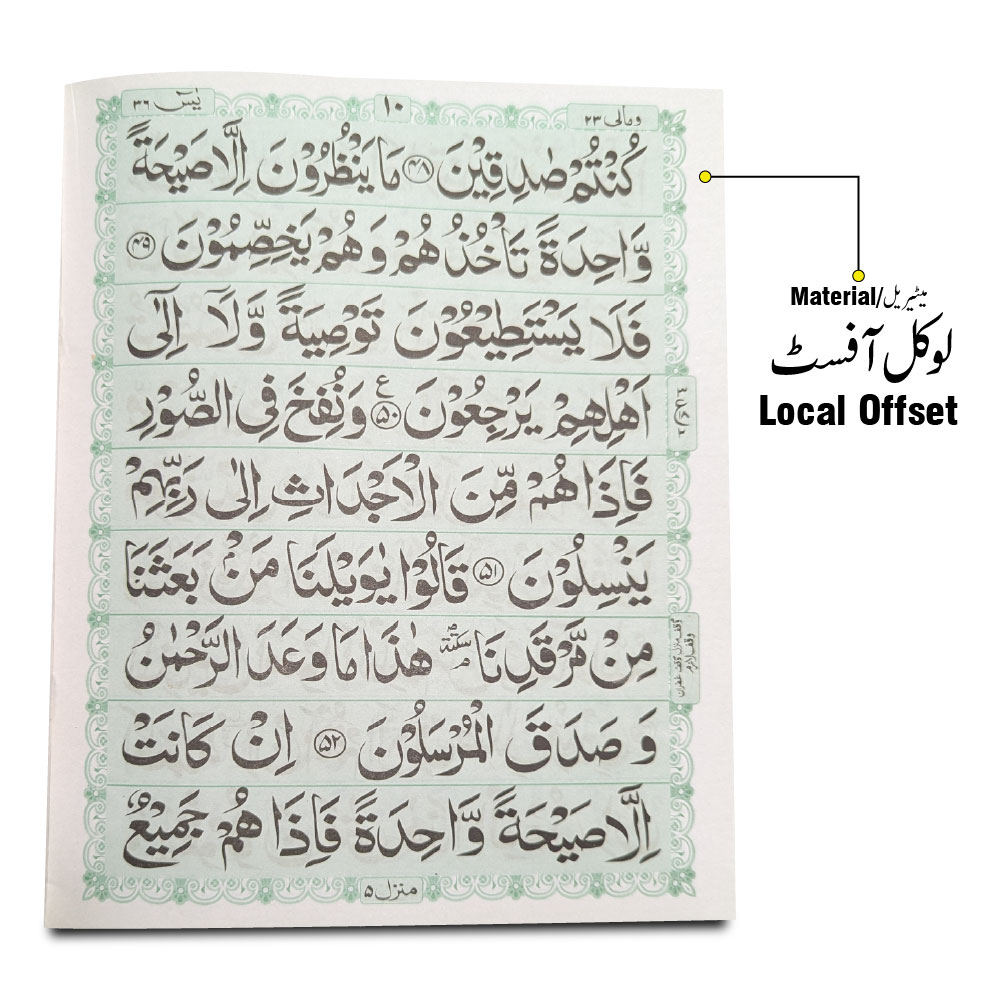 یٰسٓ ۳۶
۱۰
ومالی ۲۳
كُنْتُمْ صٰدِقِیْنَ ۴۸ مَا یَنْظُرُوْنَ اِلَّا صَیْحَةً
وَّاحِدَةً تَاْخُذُهُمْ وَهُمْ یَخِصِّمُوْنَ ۴۹
فَلَا یَسْتَطِیْعُوْنَ تَوْصِیَةً وَّلَاۤ اِلٰۤی
اَهْلِهِمْ یَرْجِعُوْنَ ۵۰ ع وَنُفِخَ فِی الصُّوْرِ
فَاِذَا هُمْ مِّنَ الْاَجْدَاثِ اِلٰی رَبِّهِمْ
یَنْسِلُوْنَ ۵۱ قَالُوْا یٰوَیْلَنَا مَنْۢ بَعَثَنَا
مِنْ مَّرْقَدِنَا ۘ سكتة هٰذَا مَا وَعَدَ الرَّحْمٰنُ
وَ صَدَقَ الْمُرْسَلُوْنَ ۵۲ اِنْ كَانَتْ
اِلَّا صَیْحَةً وَّاحِدَةً فَاِذَا هُمْ جَمِیْعٌ
وقف منزل وقف غفران
وقف لازم
منزل ۵
Material/میٹیریل
لوکل آفسٹ
Local Offset